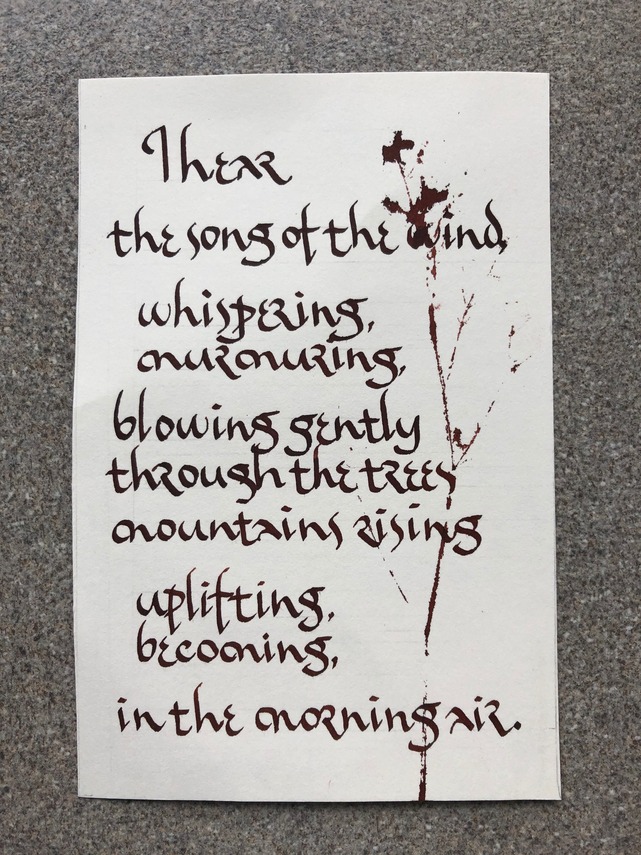 I hear
the song of the wind,
whispering,
murmuring,
blowing gently
through the trees
mountains rising
uplifting,
becoming,
in the morning air.